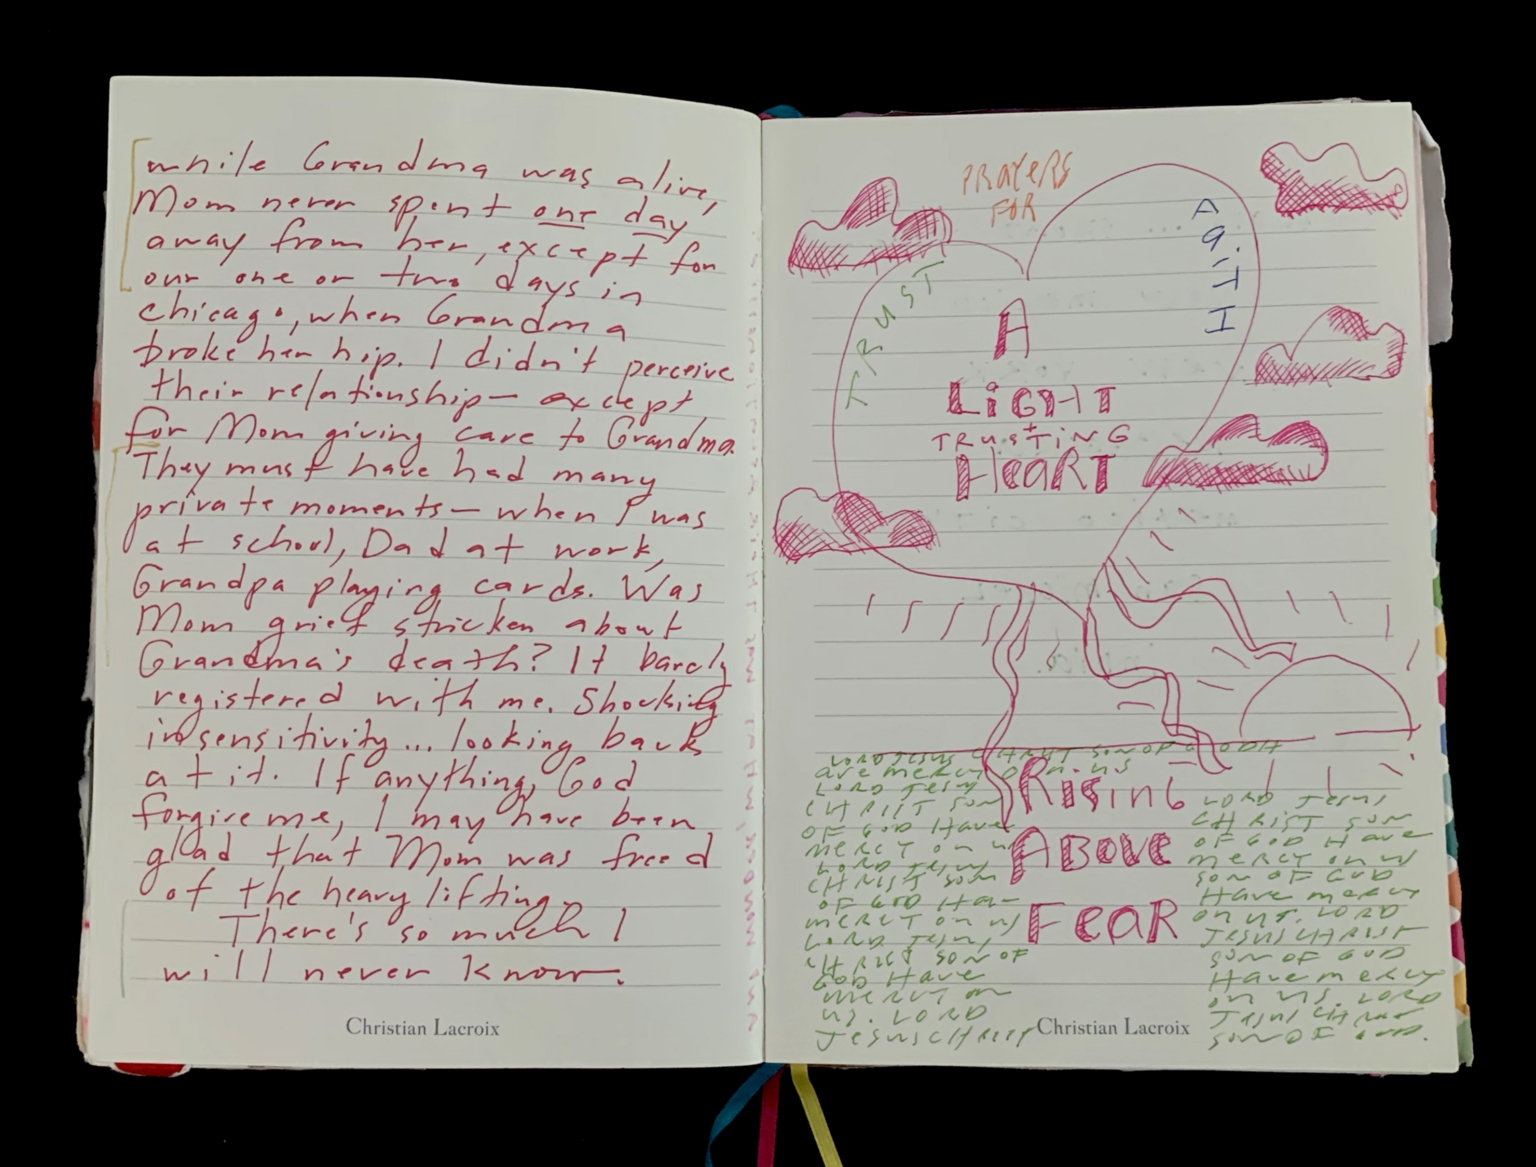 while Grandma was alive,
Mom never spent one day
away from her, except for
our one or two days in
chicago, when Grandma
broke her hip. I didn't perceive
their relationship— except
for Mom giving care to Grandma.
They must have had many
private moments— when I was
at school, Dad at work,
Grandpa playing cards. Was
Mom grief stricken about
Grandma's death? It barely
registered with me. Shocking
insensitivity... looking back
at it. If anything, God
forgive me, I may have been
glad that Mom was freed
of the heavy lifting.
There's so much I
will never know.
Christian Lacroix
PRAYERS
FOR
TRUST
A
LiGHT
+
TRUSTING
HeaRT
LORD JESUS CHRIST SON OF GOD H
ave mercy on us
LORD JESUS
CHRIST SON
OF GOD Have
mercy on us
LORD JESUS
CHRIST SON
OF GOD Ha-
mercy on us
LORD JESUS
CHRIST SON OF
GOD Have
mercy on
us. LORD
JESUS CHRIST
RisinG
ABove
FeaR
LORD JESUS
CHRIST SON
OF GOD Have
mercy on us
SON OF GOD
Have mercy
on us. LORD
JESUS CHRIST
SON OF GOD
Have mercy
on us. LORD
JESUS CHRIST
SON OF GOD.
Christian Lacroix